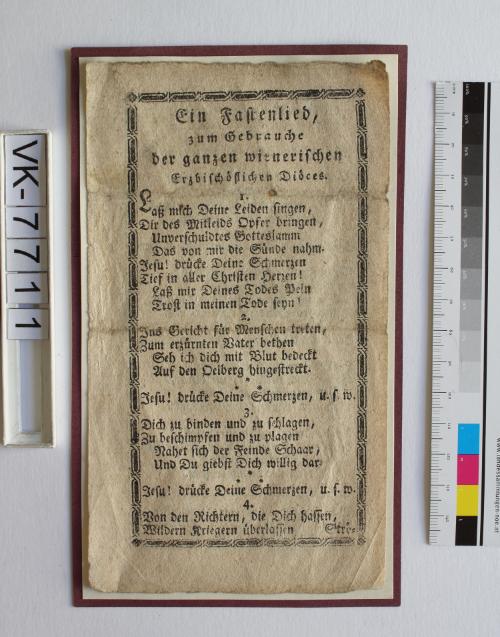 Ein Fastenlied,
zum Gebrauche
der ganzen wienerischen
Erzbischöflichen Diöces.
1.
Laß mich Deine Leiden singen,
Dir des Mitleids Opfer bringen,
Unverschuldtes Gotteslamm
Das von mir die Sünde nahm.
Jesu! drücke Deine Schmerzen
Tief in aller Christen Herzen!
Laß mir Deines Todes Pein
Trost in meinen Tode seyn!
2.
Ins Gericht für Menschen treten,
Zum erzürnten Vater bethen
Seh ich dich mit Blut bedeckt
Auf den Oelberg hingestreckt.
* * *
Jesu! drücke Deine Schmerzen, u. s. w.
3.
Dich zu binden und zu schlagen,
Zu beschimpfen und zu plagen
Nahet sich der Feinde Schaar,
Und Du giebst Dich willig dar.
* * *
Jesu! drücke Deine Schmerzen, u. s. w.
4.
Von den Richtern, die Dich hassen,
Wildern Kriegern überlassen
Strö-
VK-7711
www.landessammlungen-noe.at